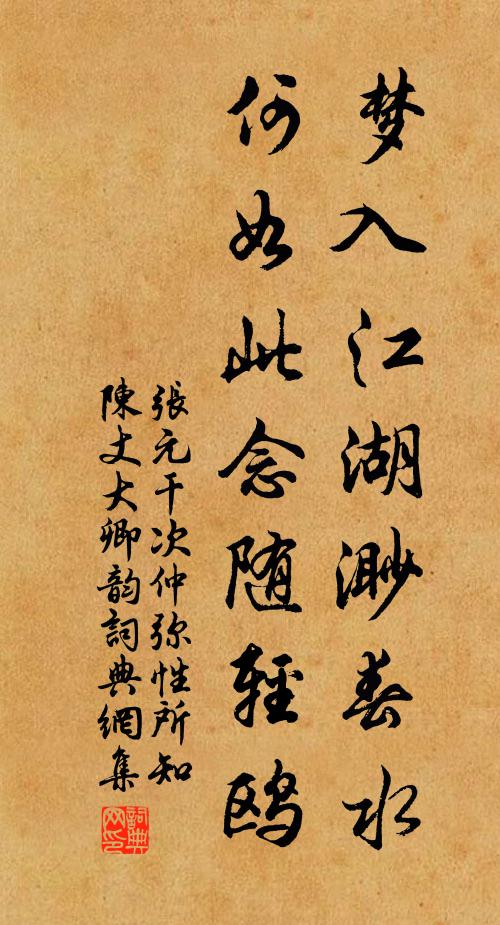 梦入江湖渺春水
何如此念随輕鸥
張元干次仲弥性所知
陳丈大卿韵詞典網集
詞典网印